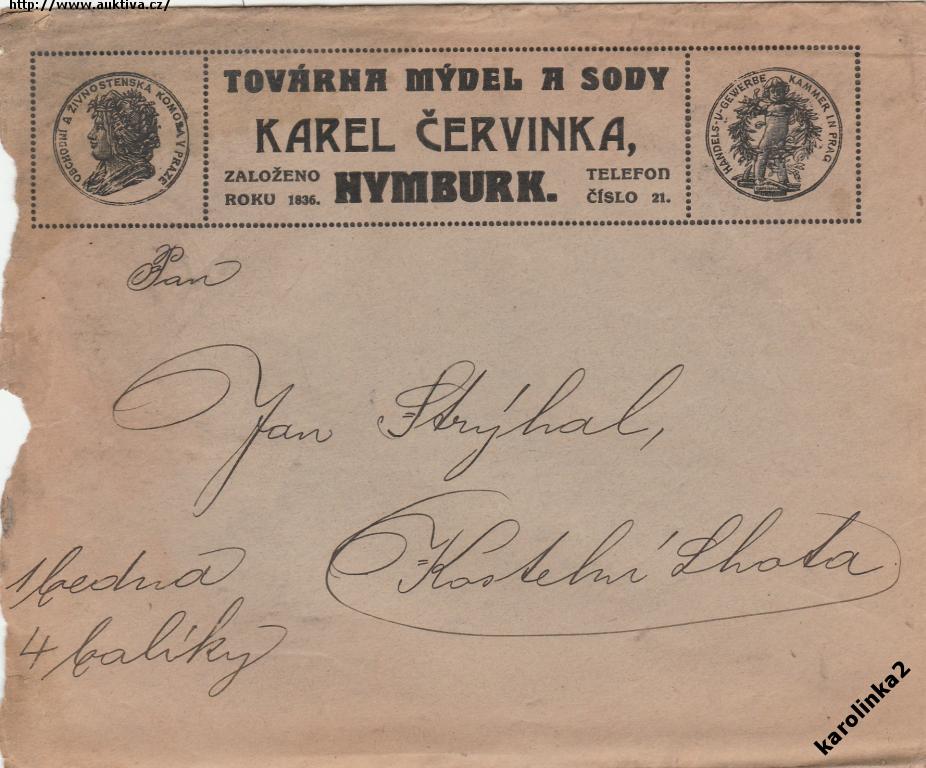 http://www.auktiva.cz/
OBCHODNÍ A ŽIVNOSTENSKÁ KOMORA V PRAZE
TOVÁRNA MÝDEL A SODY
KAREL ČERVINKA,
ZALOŽENO ROKU 1836.
NYMBURK.
TELEFON ČÍSLO 21.
HANDELS-U-GEWERBE KAMMER IN PRAG
Pan
Jan Strýhal,
Kostelní Lhota
1 bedna
4 balíky
karolinka2